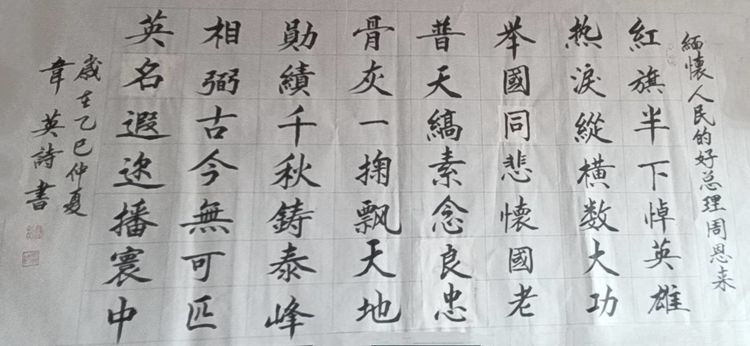 缅懷人民的好总理周恩来
紅旗半下悼英雄
热淚縱横数大功
举國同悲懷國老
普天縞素念良忠
骨灰一掬飘天地
勛績千秋鋳泰峰
相弼古今無可匹
英名遐迩播寰中
歲在乙巳仲夏
韋英詩書